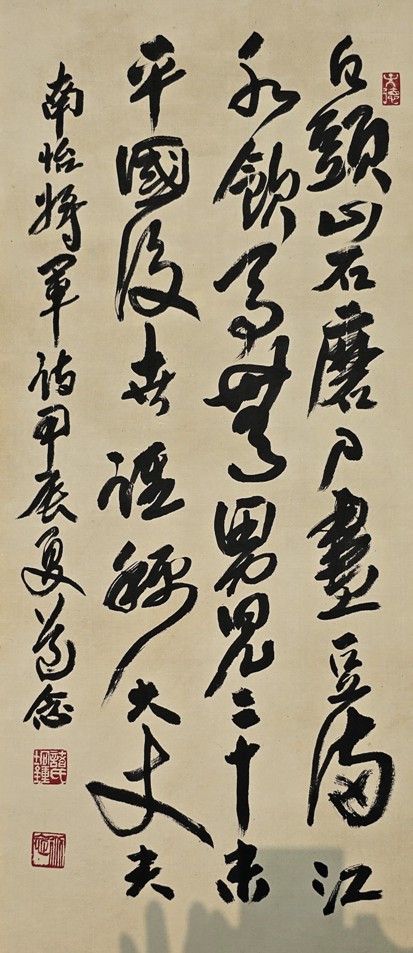 白頭山石磨刀盡豆滿江
水飮馬無男兒二十未
平國後世誰稱大丈夫
南怡將軍詩甲辰夏